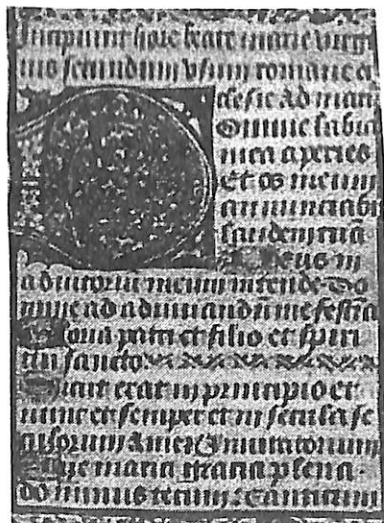 Incipiunt hore beate marie virgi
nis secundum usum romane ec
clesie ad matu
Domine labia
mea aperies
Et os meum
annunciabit
laudem tuã
Deus in
adiutorium meum intende Do
mine ad adiuvandũ me festina
Gloria patri et filio et spiri
tui sancto
Sicut erat in principio et
nunc et semper et in secula se
culorum Amen Invitatorium
Ave maria gracia plena
dominus tecum